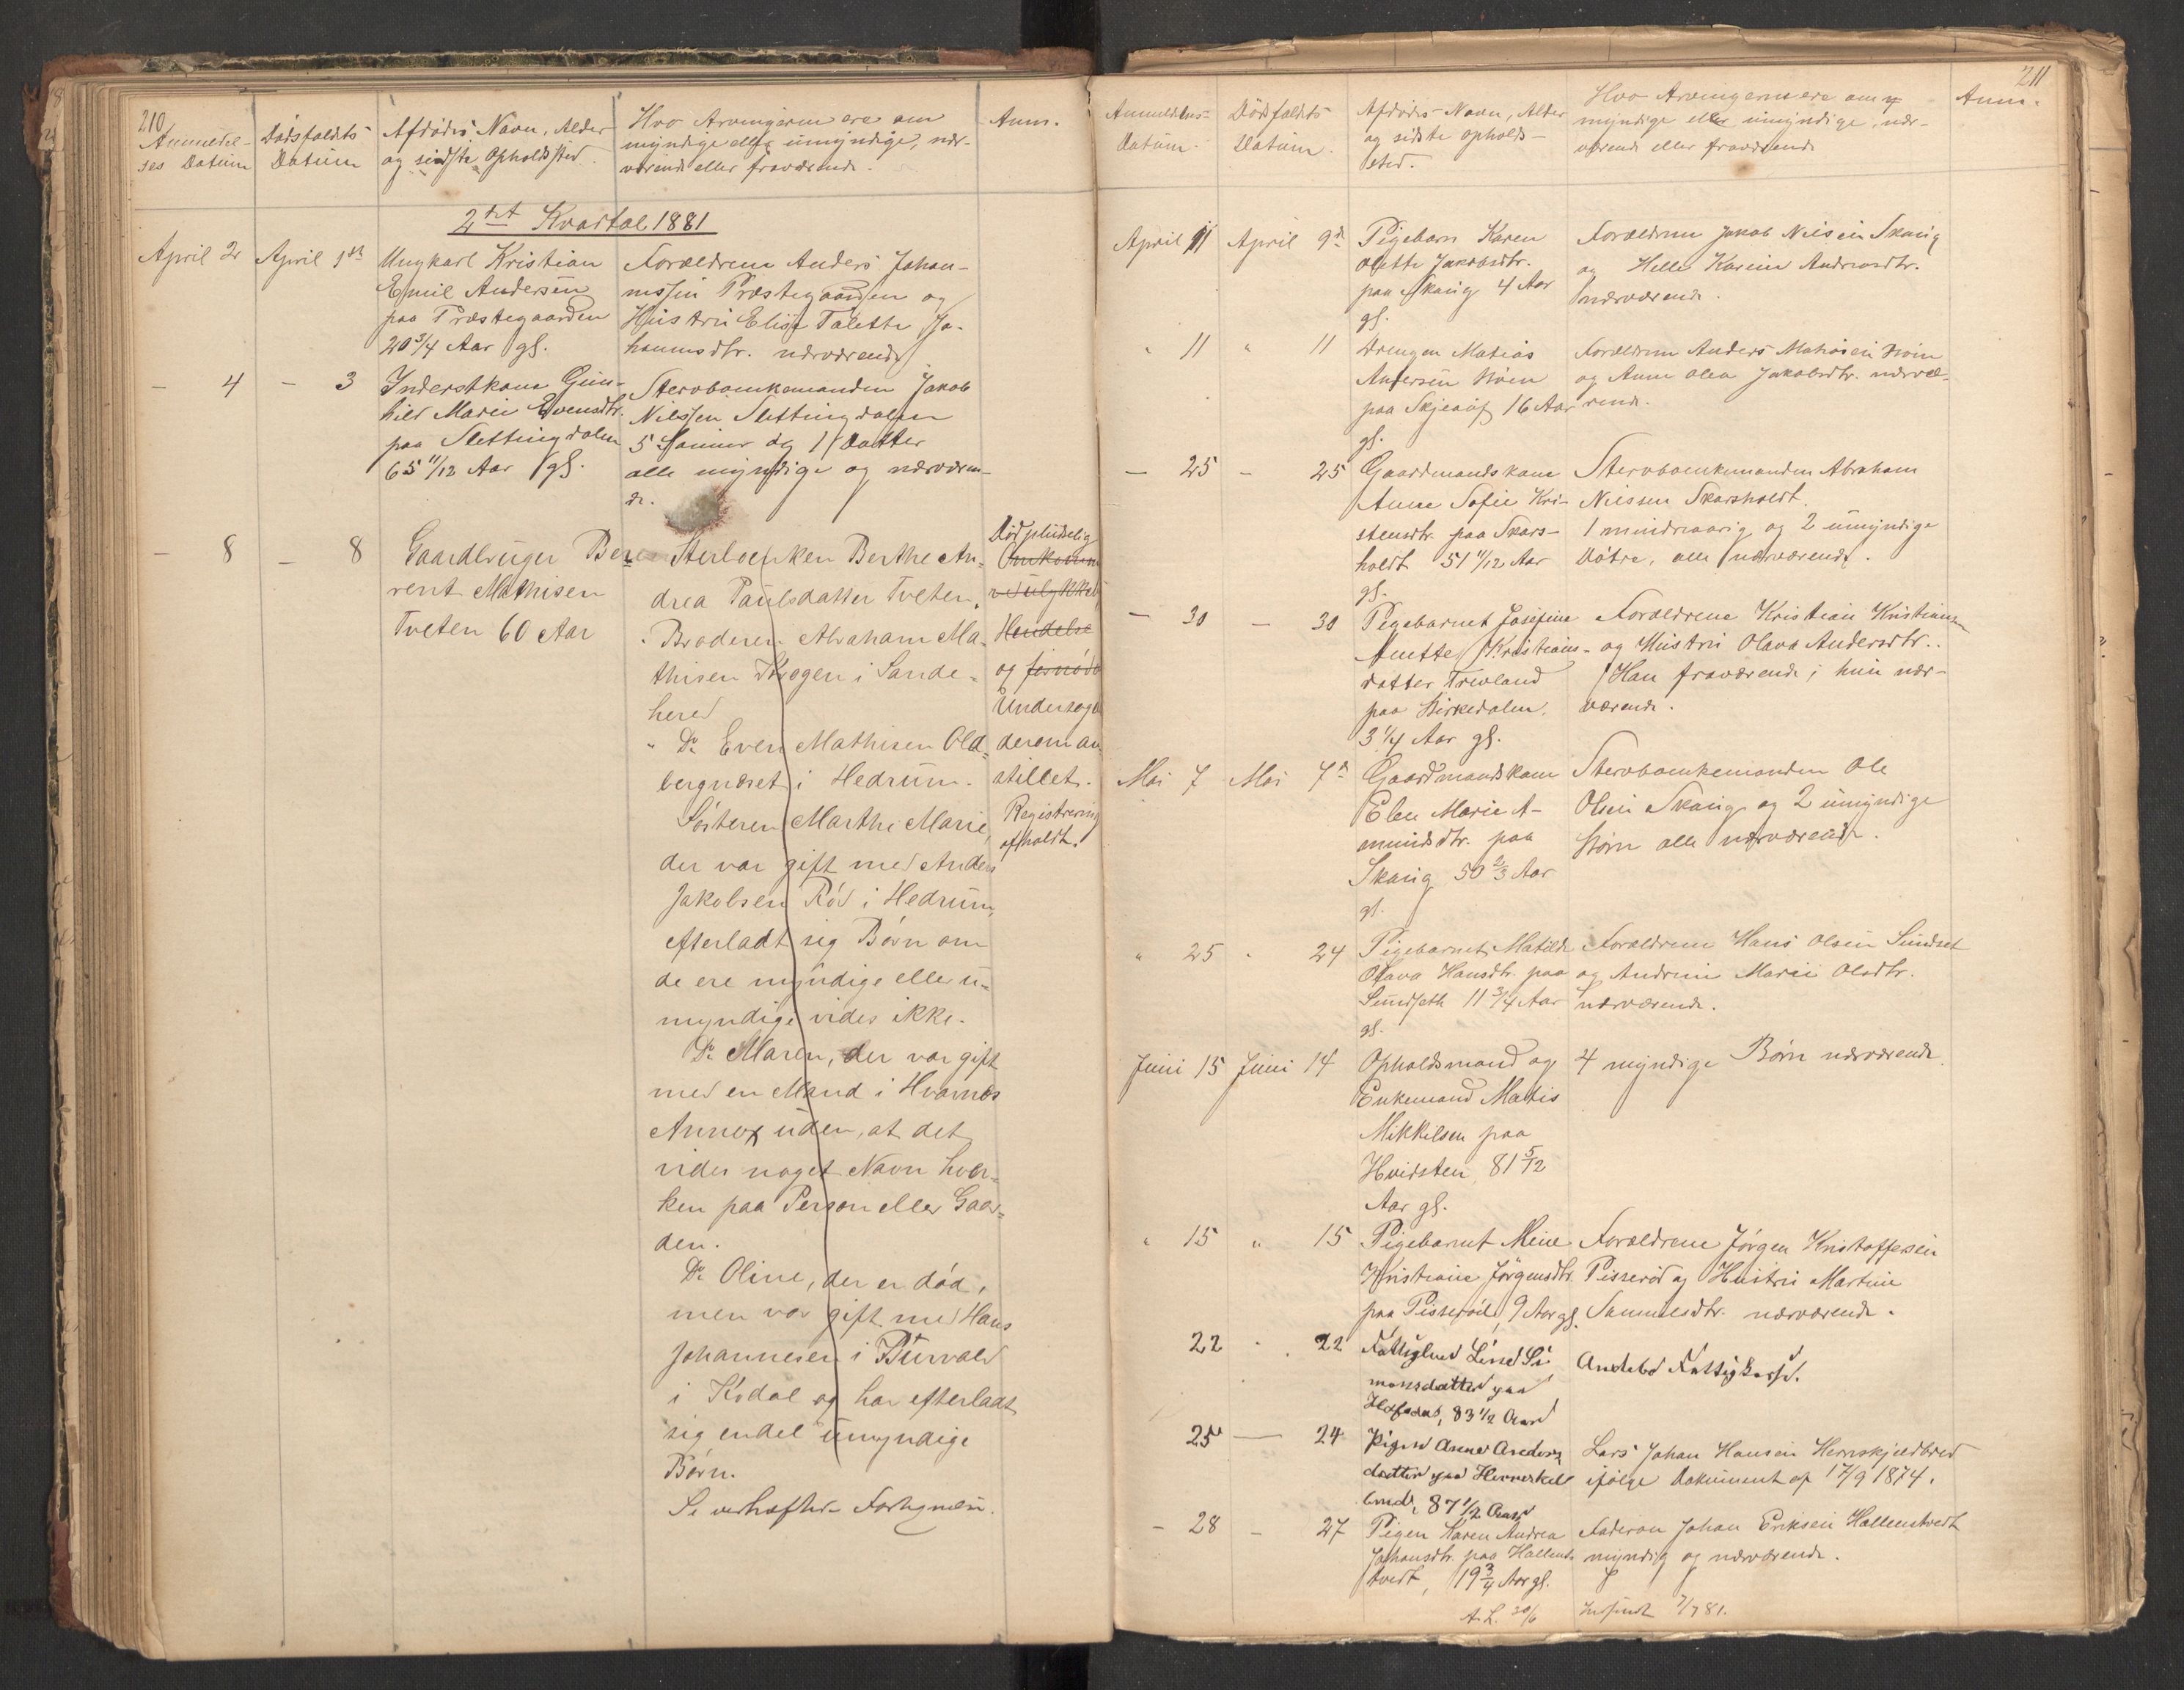 210
Anmeldel-
ses Datum
Dødsfaldets
Datum
Afdødes Navn, Alder
og sidste Opholdssted.
Hvo Arvingerne ere om
myndige eller umyndige, nær-
værende eller fraværende.
Anm.
2det Kvartal 1881
April 2
April 1ste
Ungkarl Kristian
Emil Andersen
paa Præstegaarden
20 3/4 Aar gl.
Forældrene Anders Johan-
nessen Præstegaarden og
Hustru Elise Talette Jo-
hannesdtr. nærværende
— 4
— 3
Inderstkone Gun-
hild Marie Evensdtr.
paa Slettingdalen
65 11/12 Aar gl.
Stervboenkemanden Jakob
Nilssen Slettingdalen
5 Sønner og 1 Datter
alle myndige og nærværen-
de.
— 8
— 8
Gaardbruger Be-
rent Mathisen
Tveten 60 Aar
Sterboenken Berthe An-
drea Paulsdatter Tveten.
Broderen Abraham Ma-
thisen Skogen i Sande-
hered
" Do Even Mathisen Old-
bergnæset i Hedrum.
Søsteren Marthe Marie,
der var gift med Anders
Jakobsen Rød i Hedrum,
efterladt sig Børn om
de ere myndige eller u-
myndige vides ikke.
Do Maren, der var gift
med en Mand i Hvarnes
Annex uden, at det
vides noget Navn hver-
ken paa Person eller Gaar-
den.
Do Oline, der er død,
men var gift med Hans
Johannesen i Burvald
i Kodal og har efterladt
sig endel umyndige
Børn.
Se vedhæftede
Død pludselig
Omkommen
ved ulykkel
Hendelse
og
Undersøge
derom an
stillet.
Registrering
afholdt.
211
Anmeldelses-
Datum.
Dødsfaldets
Datum.
Afdødes Navn, Alder
og sidste Opholds-
sted.
Hvo Arvingerne ere om
myndige eller umyndige, nær-
værende eller fraværende
Anm.
April 11
April 9de
Pigebarn Karen
Olette Jakobsdtr.
paa Skaug 4 Aar
gl.
Forældrene Jakob Nilsen Skaug
og Helle Karine Andreasdtr.
nærværende.
" 11
" 11
Drengen Matias
Andersen Moen
paa Skjeau 16 Aar
gl.
Forældrene Anders Matisen Moen
og Anne Olea Jakobsdtr. nærvæ-
rende.
— 25
— 25
Gaardmandskone
Anne Sofie Kri-
stensdtr. paa Skars-
holdt 51 11/12 Aar
gl.
Stervboenkemanden Abraham
Nilssen Skarsholdt.
1 mindreaarig og 2 umyndige
Døtre, alle nærværende.
— 30
— 30
Pigebarnet Josefine
Anette Kristians-
datter Trevland
paa Birkedalen.
3 1/4 Aar gl.
Forældrene Kristian Kristiansen
og Hustru Olava Andersdtr..
Han fraværende; hun nær-
værende.
Mai 7
Mai 7de
Gaardmandskone
Elen Marie A-
mundsdtr. paa
Skaug 50 2/3 Aar
gl.
Stervboenkemanden Ole
Olsen Skaug og 2 umyndige
Børn alle nærværende.
" 25
" 24
Pigebarnet Matilde
Olava Hansdtr. paa
Sundseth 11 3/4 Aar
gl.
Forældrene Hans Olsen Sundset
og Andrine Marie Olsdtr.
nærværende.
Juni 15
Juni 14
Opholdsmand og
Enkemand Matis
Mikkelsen paa
Hvidsten, 81 5/12
Aar gl.
4 myndige Børn nærværende.
" 15
" 15
Pigebarnet Mine
Kristiane Jørgensdtr.
paa Pisserød, 9 Aar gl.
Forældrene Jørgen Kristoffersen
Pisserød og Hustru Martine
Samuelsdtr. nærværende.
22
" 22
Fattiglem Line Si-
monsdatter paa
83 1/2 Aar
Andebo Fattigkasse.
25
— 24
Pigen Anne Anders-
datter paa Herreskel-
bred, 87 1/2 Aar
Lars Johan Hansen Herreskjelbred
ifølge Dokument af 17/9 1874.
— 28
— 27
Pigen Karen Andrea
Johansdtr. paa Hallens-
tvedt, 19 3/4 Aar gl.
Faderen Johan Eriksen Hallenstvedt
myndig og nærværende.
A.L. 30/6
Indsendt 7/7 81.